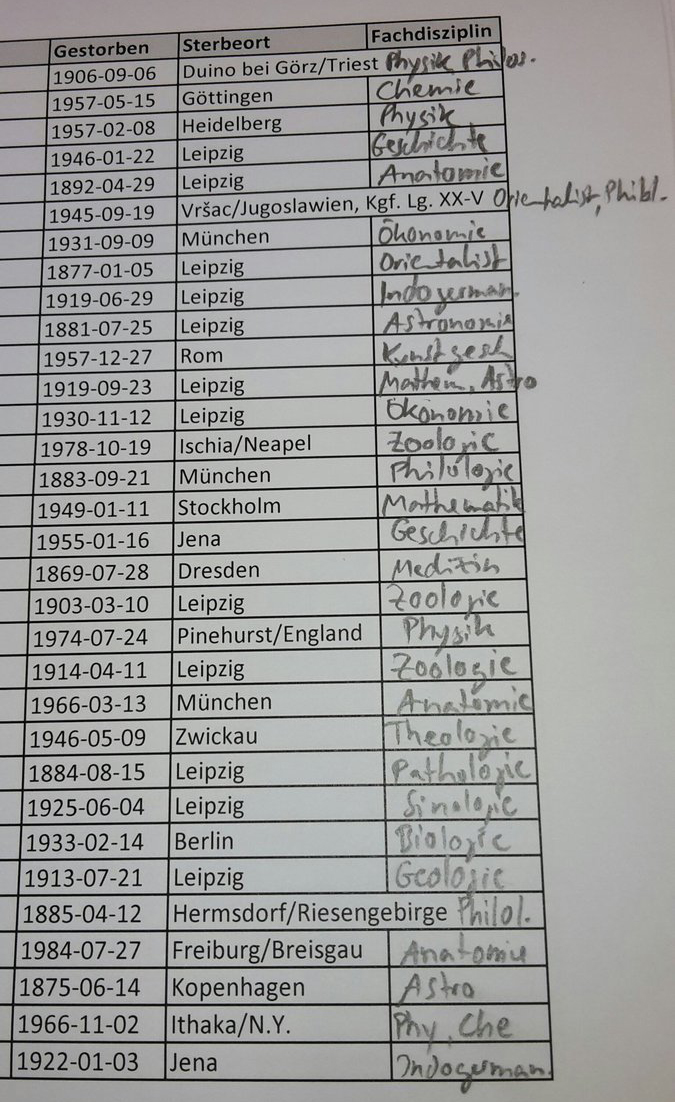 Gestorben Sterbeort Fachdisziplin
1906-09-06 Duino bei Görz/Triest Physik Philos.
1957-05-15 Göttingen Chemie
1957-02-08 Heidelberg Physik
1946-01-22 Leipzig Geschichte
1892-04-29 Leipzig Anatomie
1945-09-19 Vršac/Jugoslawien, Kgf. Lg. XX-V Orientalist, Phibl.
1931-09-09 München Ökonomie
1877-01-05 Leipzig Orientalist
1919-06-29 Leipzig Indogerman.
1881-07-25 Leipzig Astronomie
1957-12-27 Rom Kunstgesch
1919-09-23 Leipzig Mathem, Astro
1930-11-12 Leipzig Ökonomie
1978-10-19 Ischia/Neapel Zoologie
1883-09-21 München Philologie
1949-01-11 Stockholm Mathematik
1955-01-16 Jena Geschichte
1869-07-28 Dresden Medizin
1903-03-10 Leipzig Zoologie
1974-07-24 Pinehurst/England Physik
1914-04-11 Leipzig Zoologie
1966-03-13 München Anatomie
1946-05-09 Zwickau Theologie
1884-08-15 Leipzig Pathologie
1925-06-04 Leipzig Sinologie
1933-02-14 Berlin Biologie
1913-07-21 Leipzig Geologie
1885-04-12 Hermsdorf/Riesengebirge Philol.
1984-07-27 Freiburg/Breisgau Anatomie
1875-06-14 Kopenhagen Astro
1966-11-02 Ithaka/N.Y. Phy, Che
1922-01-03 Jena Indogerman.